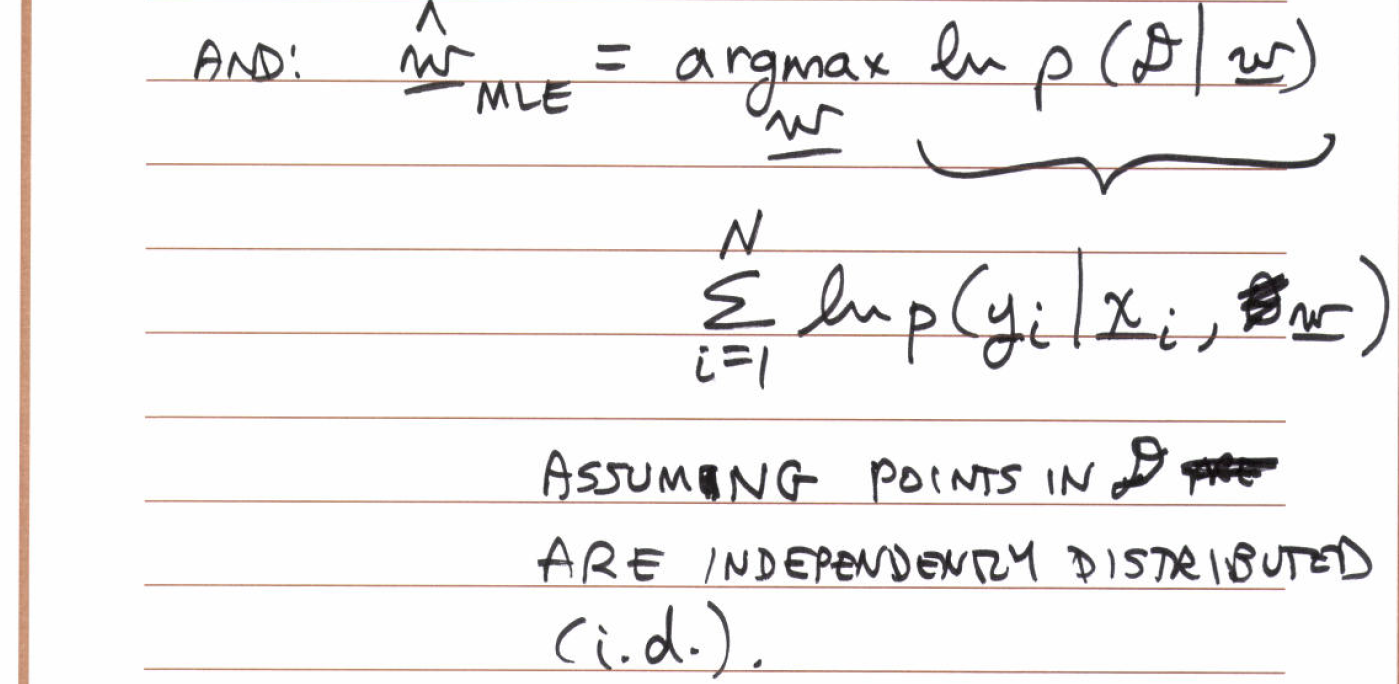 AND: ŵ_MLE = argmax_w ln p(𝒟|w)
∑_{i=1}^{N} ln p(y_i|x_i, w)
ASSUMING POINTS IN 𝒟
ARE INDEPENDENTLY DISTRIBUTED
(i.d.).